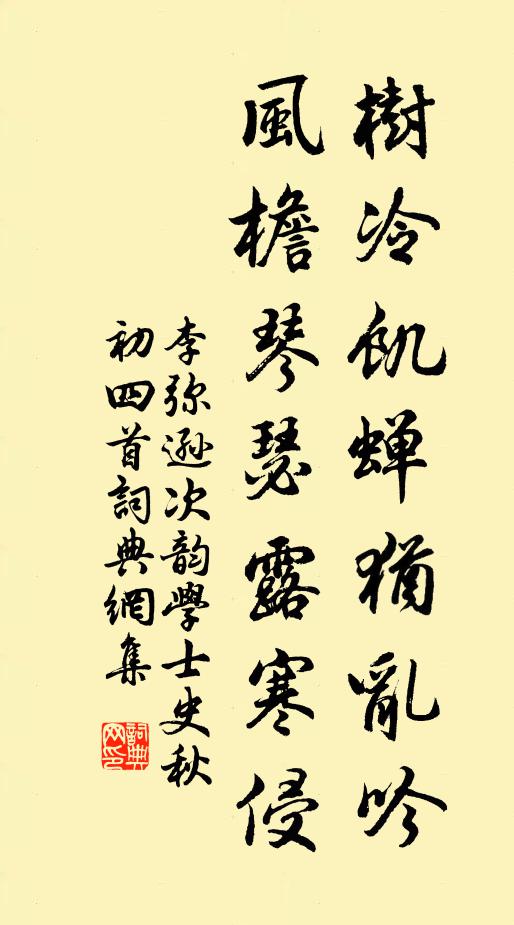 樹冷飢蟬猶亂吟
風檐琴瑟露寒侵
李弥遜次韵學士史秋
初四首詞典網集
詞典網印